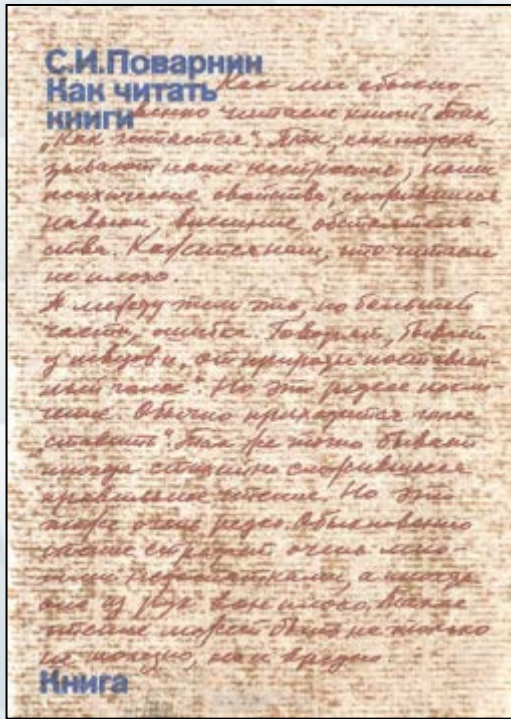 С.И.Поварнин
Как читать
книги
Как мы обыкно-
венно читаем книги? Так,
"как читается". Так, как подска-
зывают наше настроение, наши
психические свойства, сложившиеся
навыки, внешние обстоятель-
ства. Кажется нам, что читаем
не плохо.
А между тем это, по большей
части, ошибка. Говорят, бывает
у певцов и "от природы поставлен-
ный голос". Но это редкое исклю-
чение. Обычно приходится голос
"ставить". Так же точно бывает
иногда стихийно сложившееся
правильное чтение. Но это
тоже очень редко. Обыкновенно
чтение страдает очень мно-
гими недостатками, а иногда
оно из рук вон плохо. Такое
чтение может быть не только
не полезно, но и вредно.
Книга